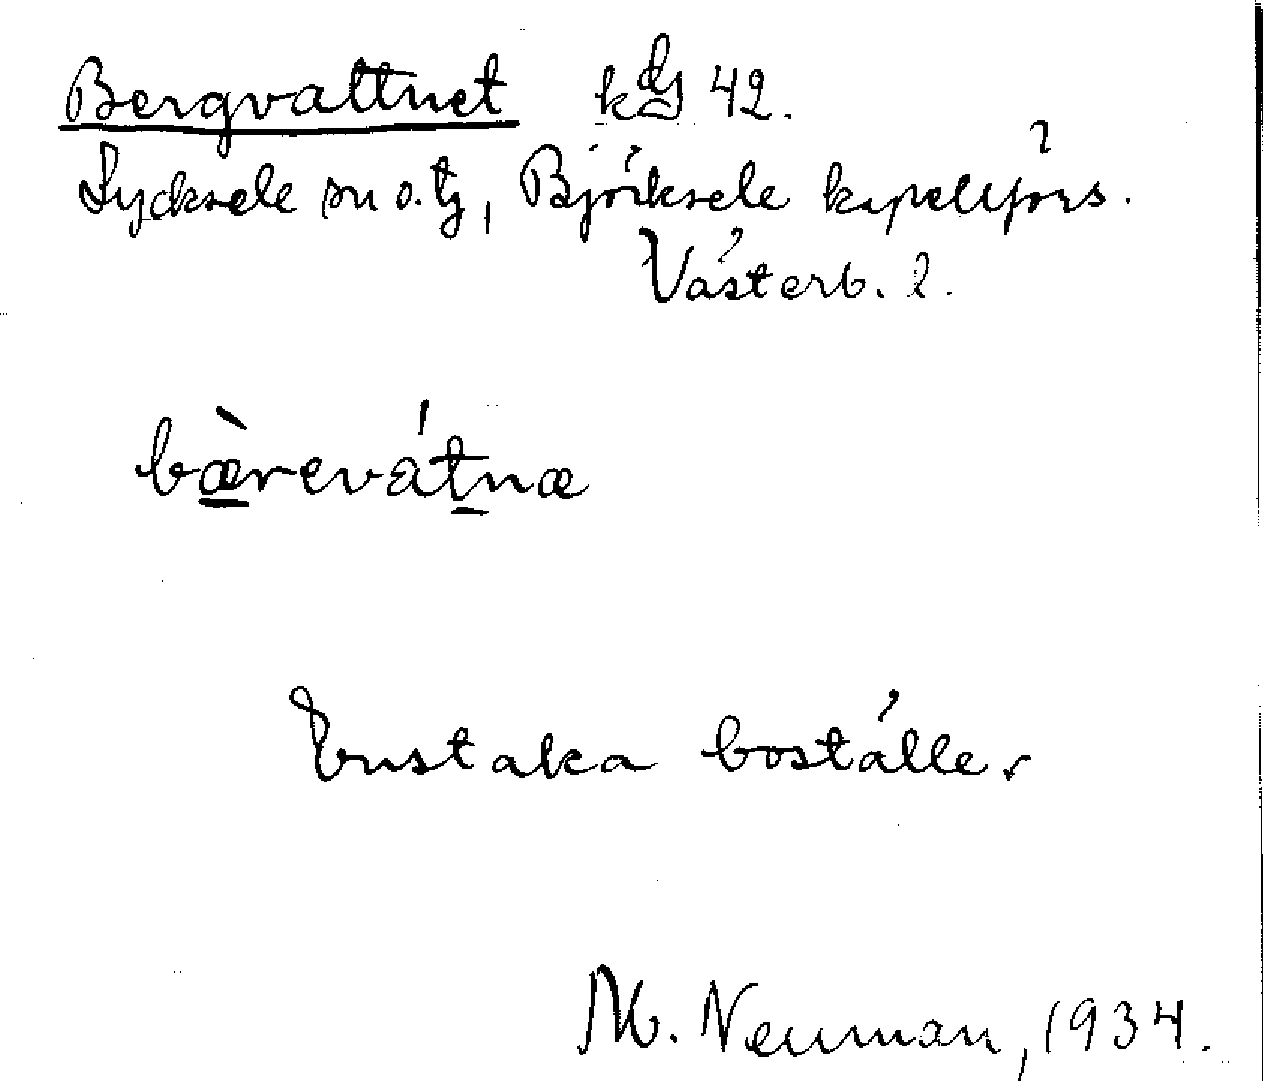 Bergvattnet kbl 42.
Lycksele sn o. tg, Björksele kapellförs.
Västerb. l.
bæ̀revátnæ
Enstaka boställe.
M. Neuman, 1934.